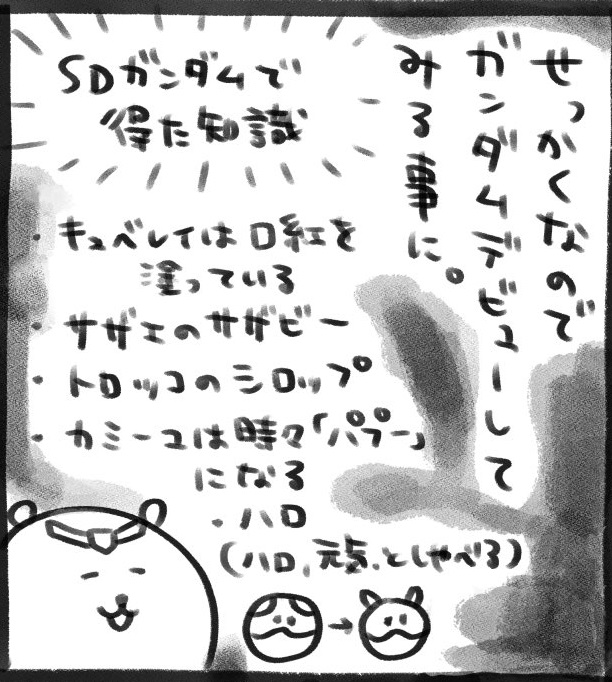 せっかくなので
ガンダムデビューして
みる事に。
SDガンダムで
得た知識
・キュベレイは口紅を
塗っている
・サザエのサザビー
・トロッコのシロップ
・カミーユは時々「パプー」
になる
・ハロ
(ハロ、元気、としゃべる)
→